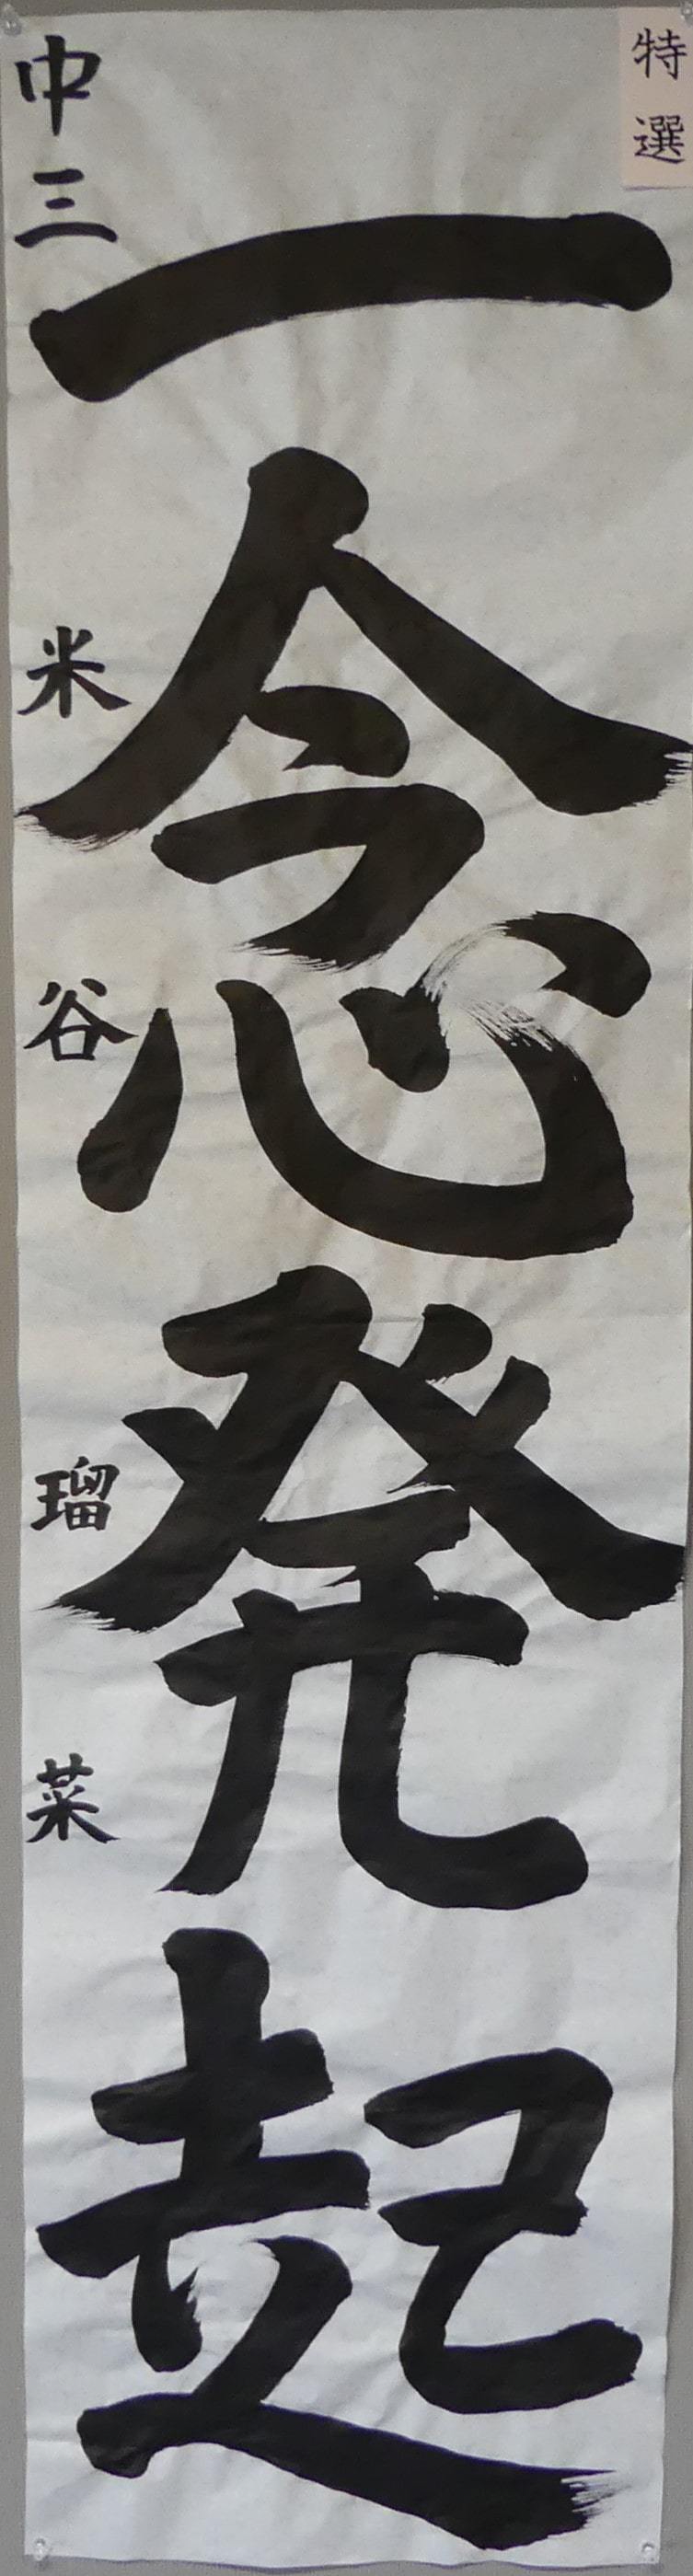 特選
一念発起
中三 米谷瑠菜